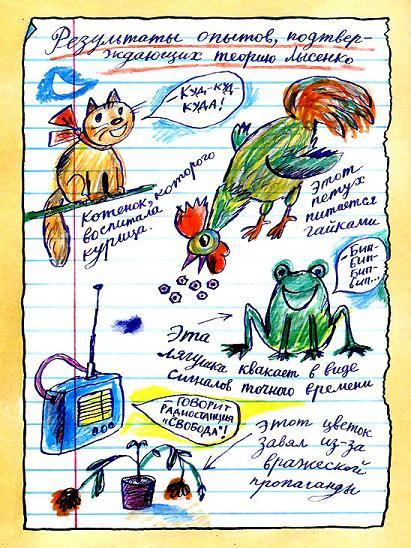 Результаты опытов, подтвер-
ждающих теорию Лысенко
- КУД-КУД-
КУДА!
Котенок, которого
воспитала
курица.
Этот
петух
питается
гайками
- БИП-
БИП-
БИП-
БИП...
Эта
лягушка квакает в виде
сигналов точного времени
- ГОВОРИТ
РАДИОСТАНЦИЯ
"СВОБОДА"!
Этот цветок
завял из-за
вражеской
пропаганды